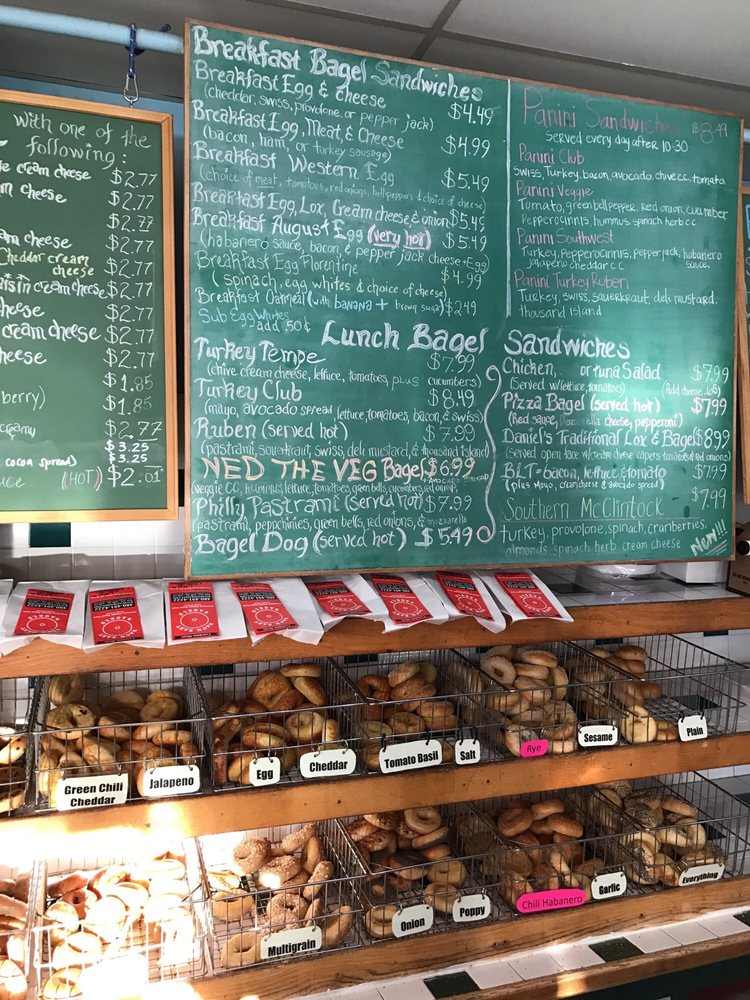 with one of the
following:
cream cheese $2.77
cream cheese $2.77
$2.77
am cheese $2.77
Cheddar cream
cheese $2.77
cream cheese $2.77
cheese $2.77
cream cheese $2.77
cheese $2.77
$1.85
berry) $1.85
creamy $2.77
$3.25
cocoa spread) $3.25
(HOT) $2.01
Breakfast Bagel Sandwiches
Breakfast Egg & cheese $4.49
(cheddar, swiss, provolone, or pepper jack)
Breakfast Egg, Meat & Cheese $4.99
(bacon, ham, or turkey sausage)
Breakfast Western Egg $5.49
(choice of meat, tomatoes, red onions, bell peppers & choice of cheese)
Breakfast Egg, Lox, Cream cheese & onion $5.49
Breakfast August Egg (very hot) $5.49
(habanero sauce, bacon, & pepper jack cheese + egg)
Breakfast Egg Florentine $4.99
(spinach, egg whites & choice of cheese)
Breakfast Oatmeal (with banana + brown sugar) $2.49
Sub Egg Whites
add, 50¢
Panini Sandwiches $8.49
Served every day after 10:30
Panini Club
Swiss, Turkey, bacon, avocado, chive cc, tomato,
Panini Veggie
Tomato, green bell pepper, red onion, cucumber
Pepperocinnis, hummus, spinach herb cc
Panini Southwest
Turkey, Pepperocinnis, pepper jack, habanero
Jalapeño cheddar cc sauce,
Panini Turkey Ruben
Turkey, swiss, sauerkraut, deli mustard,
thousand island
Lunch Bagel Sandwiches
Turkey Tempe $7.99
(chive cream cheese, lettuce, tomatoes, plus cucumbers)
Turkey Club $8.49
(mayo, avocado spread, lettuce, tomatoes, bacon, & swiss)
Ruben (served hot) $7.99
(pastrami, sourkraut, swiss, deli mustard, & thousand island)
NED THE VEG Bagel $6.99
veggie CC, hummus, lettuce, tomatoes, green bells, cucumbers, red onion,
Philly Pastrami (Served hot) $7.99
(pastrami, pepochinies, green bells, red onions, & mozzarella
Bagel Dog (served hot) $5.49
Chicken, or tuna Salad $7.99
(Served w/lettuce, tomatoes) (Add cheese .65)
Pizza Bagel (served hot) $7.99
(Red sauce, mozzarella cheese, pepperoni)
Daniel's Traditional Lox & Bagel $8.99
(served open face w/cream cheese capers tomatoes & red onions)
BLT= bacon, lettuce, & tomato $7.99
(plus Mayo, & avocado spread)
Southern McClintock $7.99
turkey, provolone, spinach, cranberries,
almonds spinach herb cream cheese
New!!!
Green Chili
Cheddar
Jalapeno
Egg
Cheddar
Tomato Basil
Salt
Rye
Sesame
Plain
Multigrain
Onion
Poppy
Chili Habanero
Garlic
Everything